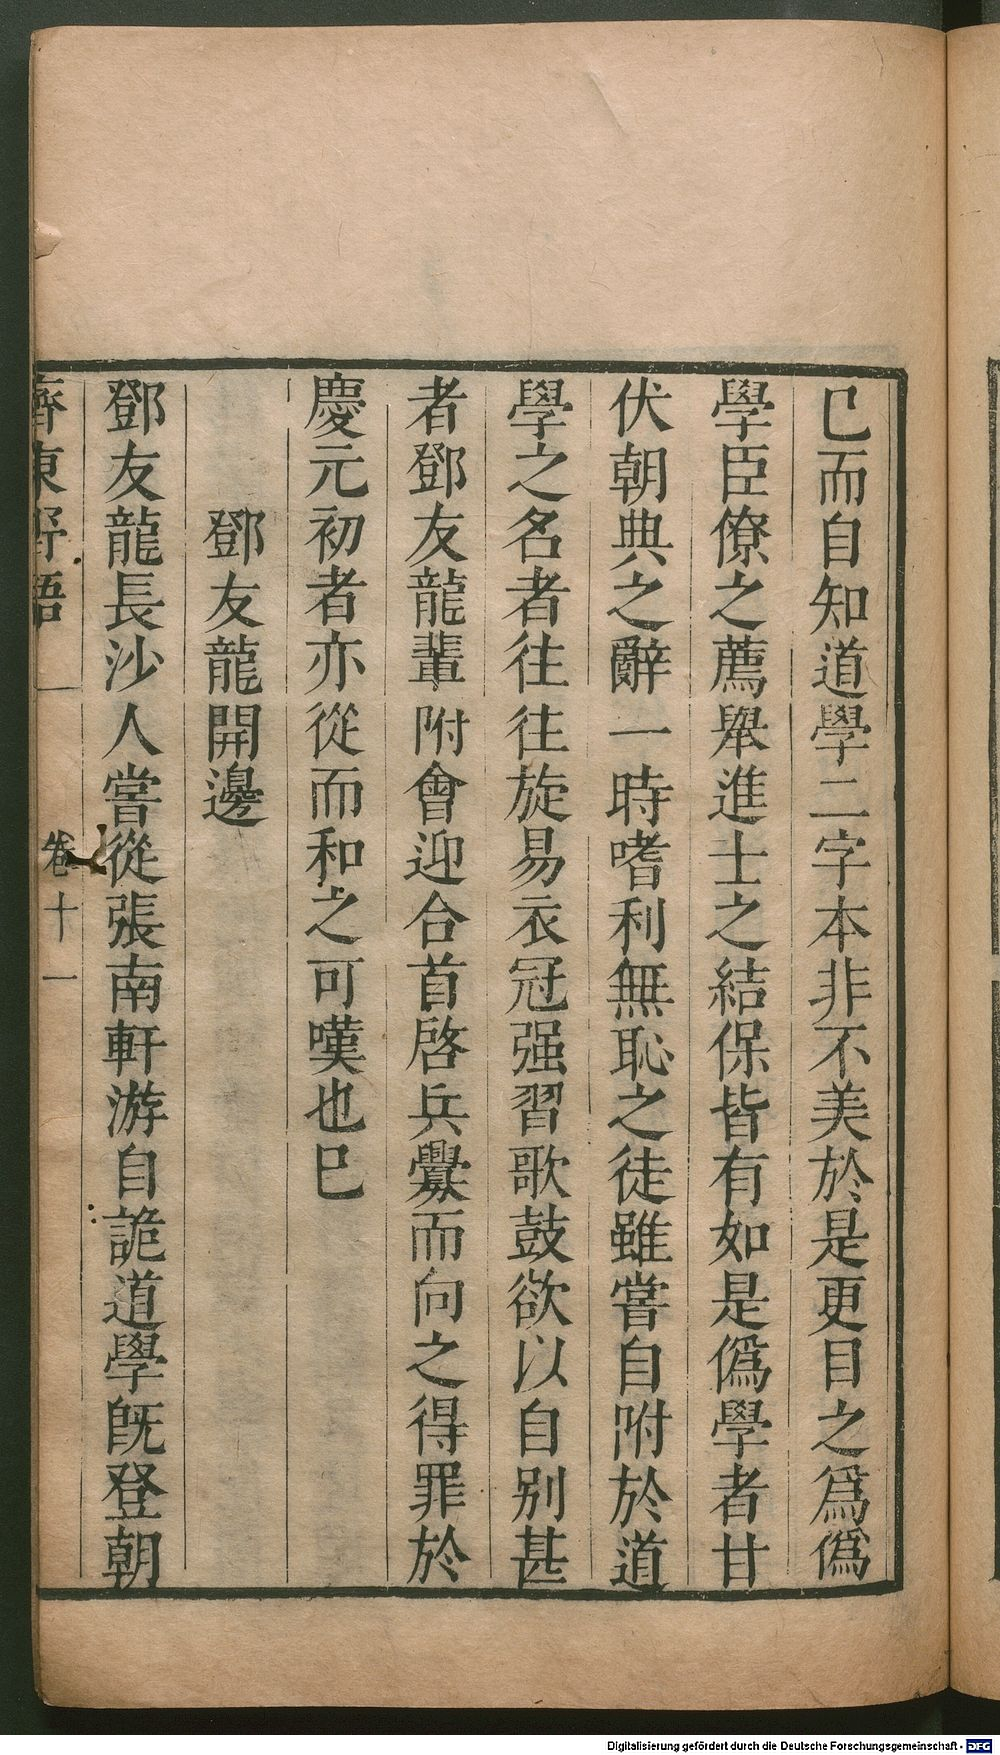 已而自知道學二字本非不美於是更目之爲僞
學臣僚之薦舉進士之結保皆有如是僞學者甘
伏朝典之辭一時嗜利無恥之徒雖嘗自附於道
學之名者往往旋易衣冠强習歌鼓欲以自别甚
者鄧友龍輩附會迎合首啓兵釁而向之得罪於
慶元初者亦從而和之可嘆也已
鄧友龍開邊
鄧友龍長沙人嘗從張南軒游自詭道學旣登朝
齊東野語 卷十一
Digitalisierung gefördert durch die Deutsche Forschungsgemeinschaft - DFG